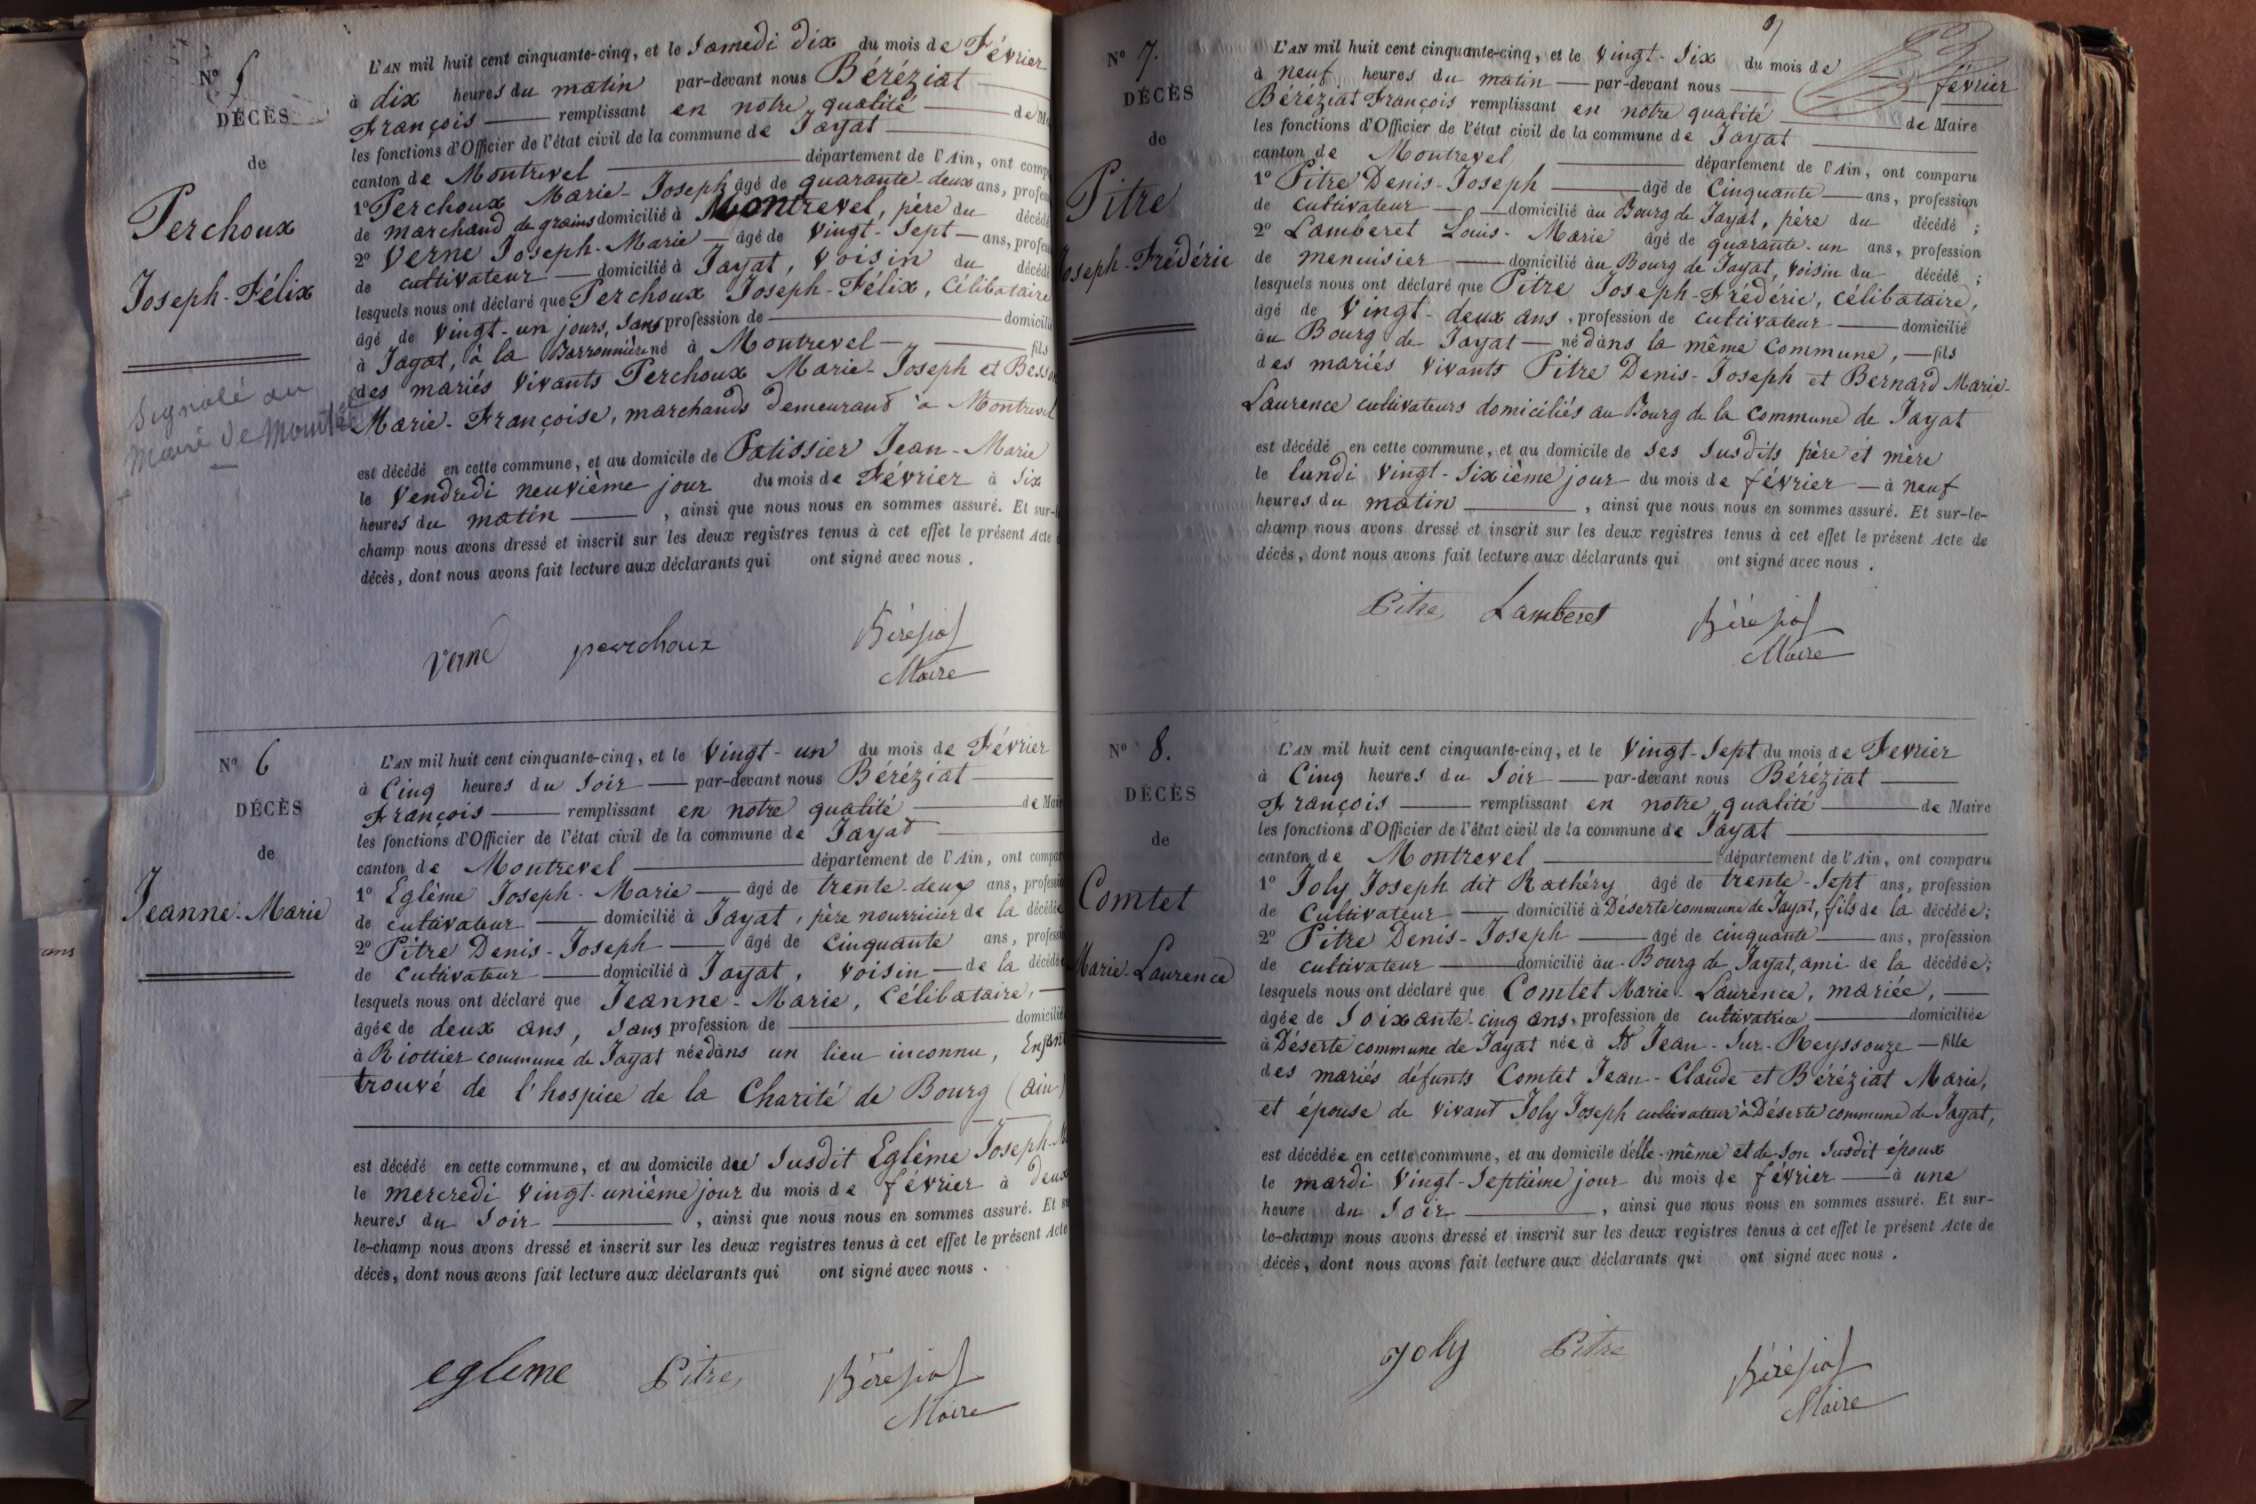 Nº 5
DÉCÈS
de
Perchoux
Joseph-Félix
Signalé au
Maire de
L'AN mil huit cent cinquante-cinq, et le Samedi dix du mois de Février
à dix heures du matin par-devant nous Béréziat
François remplissant en notre qualité de
les fonctions d'Officier de l'état civil de la commune de Jayat
canton de Montrevel département de l'Ain, ont
1º Perchoux Marie-Joseph âgé de quarante-deux ans,
de marchand de grains domicilié à Montrevel, père du
2º Verne Joseph-Marie âgé de vingt-sept ans,
de cultivateur domicilié à Jayat, voisin du
lesquels nous ont déclaré que Perchoux Joseph-Félix, célibataire
âgé de vingt-un jours, sans profession de
à Jayat, à la né à Montrevel fils
des mariés vivants Perchoux Marie-Joseph et
Marie-Françoise, marchands demeurant à Montrevel
est décédé en cette commune, et au domicile de Patissier Jean-Marie
le Vendredi neuvième jour du mois de Février à six
heures du matin, ainsi que nous nous en sommes assuré. Et
champ nous avons dressé et inscrit sur les deux registres tenus à cet effet le présent Acte
décès, dont nous avons fait lecture aux déclarants qui ont signé avec nous.
Verne perchoux Béréziat
Maire
Nº 6
DÉCÈS
de
Jeanne-Marie
L'AN mil huit cent cinquante-cinq, et le Vingt-un du mois de Février
à Cinq heures du Soir par-devant nous Béréziat
François remplissant en notre qualité de
les fonctions d'Officier de l'état civil de la commune de Jayat
canton de Montrevel département de l'Ain, ont
1º Eglême Joseph-Marie âgé de trente-deux ans,
de cultivateur domicilié à Jayat, père nourricier de la
2º Pitre Denis-Joseph âgé de cinquante ans,
de cultivateur domicilié à Jayat, voisin de la
lesquels nous ont déclaré que Jeanne-Marie, célibataire,
âgée de deux ans, sans profession de
à Riottier commune de Jayat née dans un lieu inconnu, Enfant
trouvé de l'hospice de la Charité de Bourg (ain
est décédé en cette commune, et au domicile du Susdit Eglême Joseph-
le mercredi vingt-unième jour du mois de février à deux
heures du Soir, ainsi que nous nous en sommes assuré. Et
le-champ nous avons dressé et inscrit sur les deux registres tenus à cet effet le présent Acte
décès, dont nous avons fait lecture aux déclarants qui ont signé avec nous.
egleme Pitre Béréziat
Maire
Nº 7.
DÉCÈS
de
Pitre
Joseph-Frédéric
L'AN mil huit cent cinquante-cinq, et le vingt-six du mois de février
à neuf heures du matin par-devant nous
Béréziat François remplissant en notre qualité de Maire
les fonctions d'Officier de l'état civil de la commune de Jayat
canton de Montrevel département de l'Ain, ont comparu
1º Pitre Denis-Joseph âgé de Cinquante ans, profession
de cultivateur domicilié au Bourg de Jayat, père du décédé;
2º Lamberet Louis-Marie âgé de quarante-un ans, profession
de menuisier domicilié au Bourg de Jayat, voisin du décédé;
lesquels nous ont déclaré que Pitre Joseph-Frédéric, célibataire,
âgé de Vingt-deux ans, profession de cultivateur domicilié
au Bourg de Jayat né dans la même commune, fils
des mariés vivants Pitre Denis-Joseph et Bernard Marie-
Laurence cultivateurs domiciliés au Bourg de la commune de Jayat
est décédé en cette commune, et au domicile de ses susdits père et mère
le lundi vingt-sixième jour du mois de février à neuf
heures du matin, ainsi que nous nous en sommes assuré. Et sur-le-
champ nous avons dressé et inscrit sur les deux registres tenus à cet effet le présent Acte de
décès, dont nous avons fait lecture aux déclarants qui ont signé avec nous.
Pitre Lamberet Béréziat
Maire
Nº 8.
DÉCÈS
de
Comtet
Marie-Laurence
L'AN mil huit cent cinquante-cinq, et le Vingt-sept du mois de Fevrier
à Cinq heures du Soir par-devant nous Béréziat
François remplissant en notre qualité de Maire
les fonctions d'Officier de l'état civil de la commune de Jayat
canton de Montrevel département de l'Ain, ont comparu
1º Joly Joseph dit Rathéry âgé de trente-sept ans, profession
de Cultivateur domicilié à Déserte commune de Jayat, fils de la décédée;
2º Pitre Denis-Joseph âgé de cinquante ans, profession
de cultivateur domicilié au Bourg de Jayat, ami de la décédée;
lesquels nous ont déclaré que Comtet Marie-Laurence, mariée,
âgée de Soixante-cinq ans, profession de cultivatrice domiciliée
à Déserte commune de Jayat née à St Jean-Sur-Reyssouze fille
des mariés défunts Comtet Jean-Claude et Béréziat Marie,
et épouse de vivant Joly Joseph cultivateur à Déserte commune de Jayat,
est décédée en cette commune, et au domicile d'elle-même et de son susdit époux
le mardi vingt-septième jour du mois de février à une
heure du Soir, ainsi que nous nous en sommes assuré. Et sur-
le-champ nous avons dressé et inscrit sur les deux registres tenus à cet effet le présent Acte de
décès, dont nous avons fait lecture aux déclarants qui ont signé avec nous.
Joly Pitre Béréziat
Maire